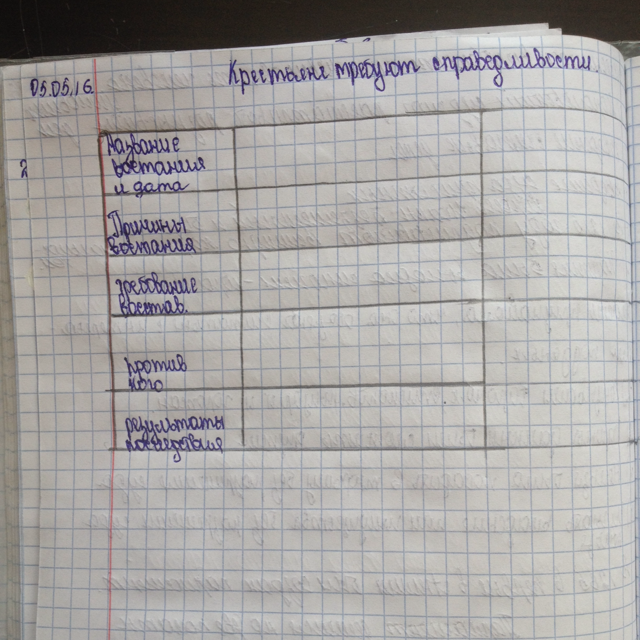 05.05.16.
Крестьяне требуют справедливости.
2
Название
востания
и дата
Причины
востания
требование
востав.
против
кого
результаты
последствия